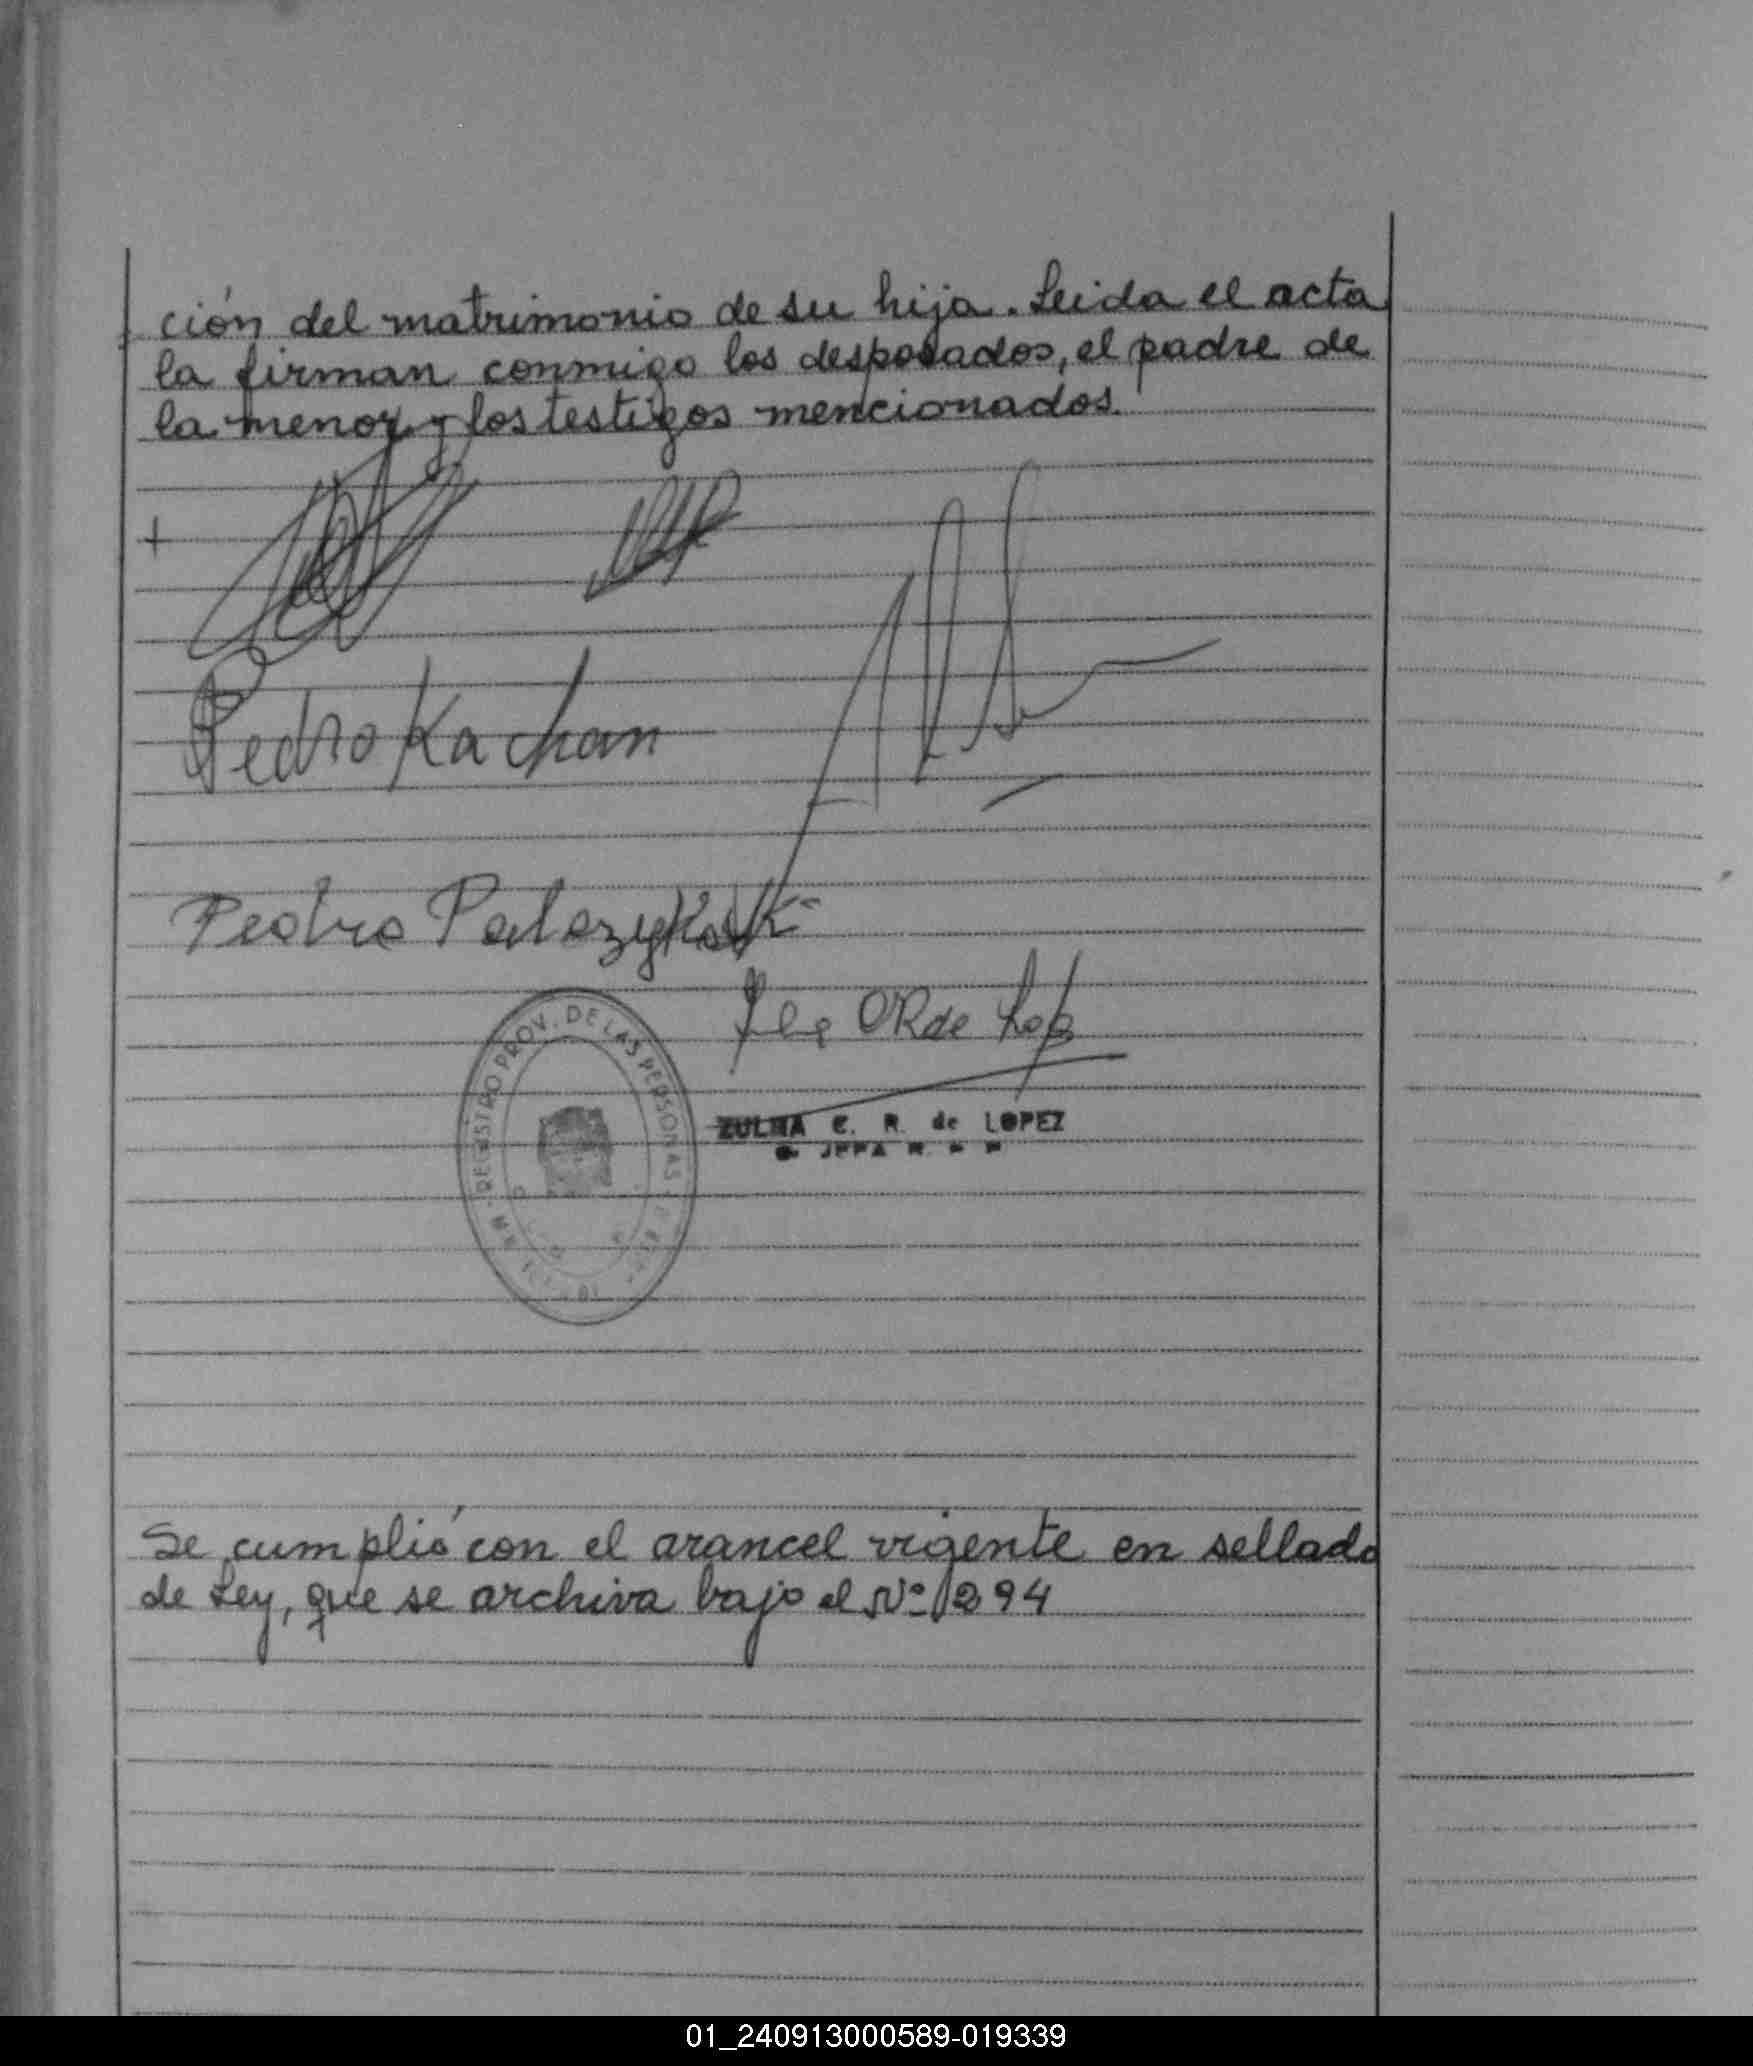 ción del matrimonio de su hija. Leida el acta
la firman conmigo los desposados, el padre de
la menor y los testigos mencionados.
Pedro Kachan
Pedro
ZULMA C. R. de LOPEZ
REGISTRO PROV. DE LAS PERSONAS
Se cumplió con el arancel vigente en sellado
de Ley, que se archiva bajo el Nº 1294
01_240913000589-019339